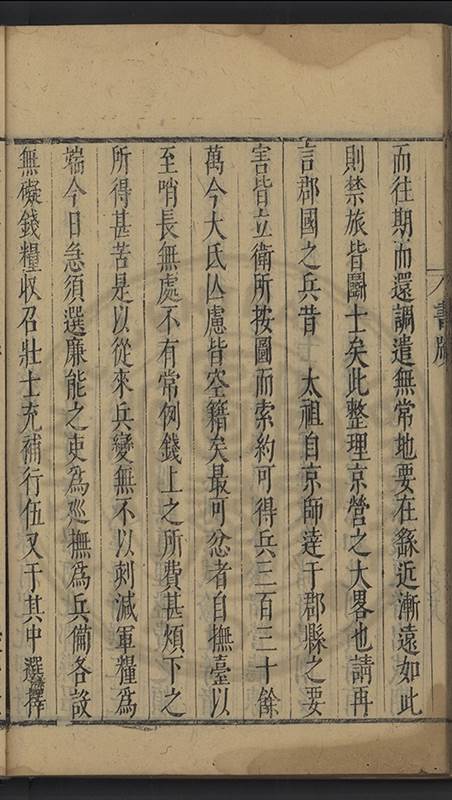 而往期而還調遣無常地要在繇近漸遠如此
則禁旅皆鬭士矣此整理京營之大畧也請再
言郡國之兵昔 太祖自京師達于郡縣之要
害皆立衛所按圖而索約可得兵三百三十餘
萬今大氐仏慮皆空籍矣最可忿者自撫臺以
至哨長無處不有常例錢上之所費甚煩下之
所得甚苦是以從來兵變無不以刻減軍糧為
端今日急須選廉能之吏為廵撫為兵俻各設
無礙錢糧収召壯士充補行伍又于其中選擇